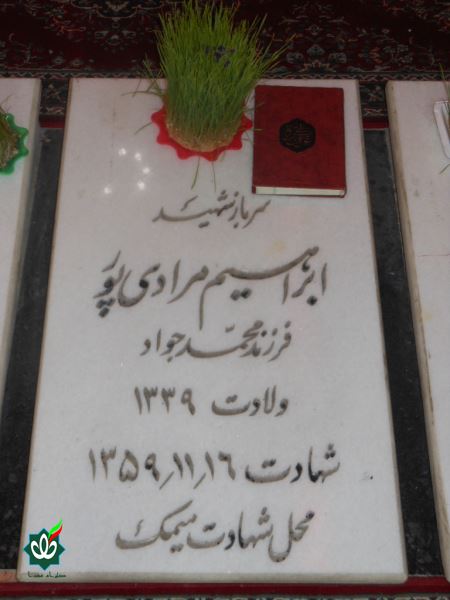 سرباز شهید
ابراهیم مرادی پور
فرزند محمد جواد
ولادت ۱۳۳۹
شهادت ۱۶٫۱۱٫۱۳۵۹
محل شهادت میمک